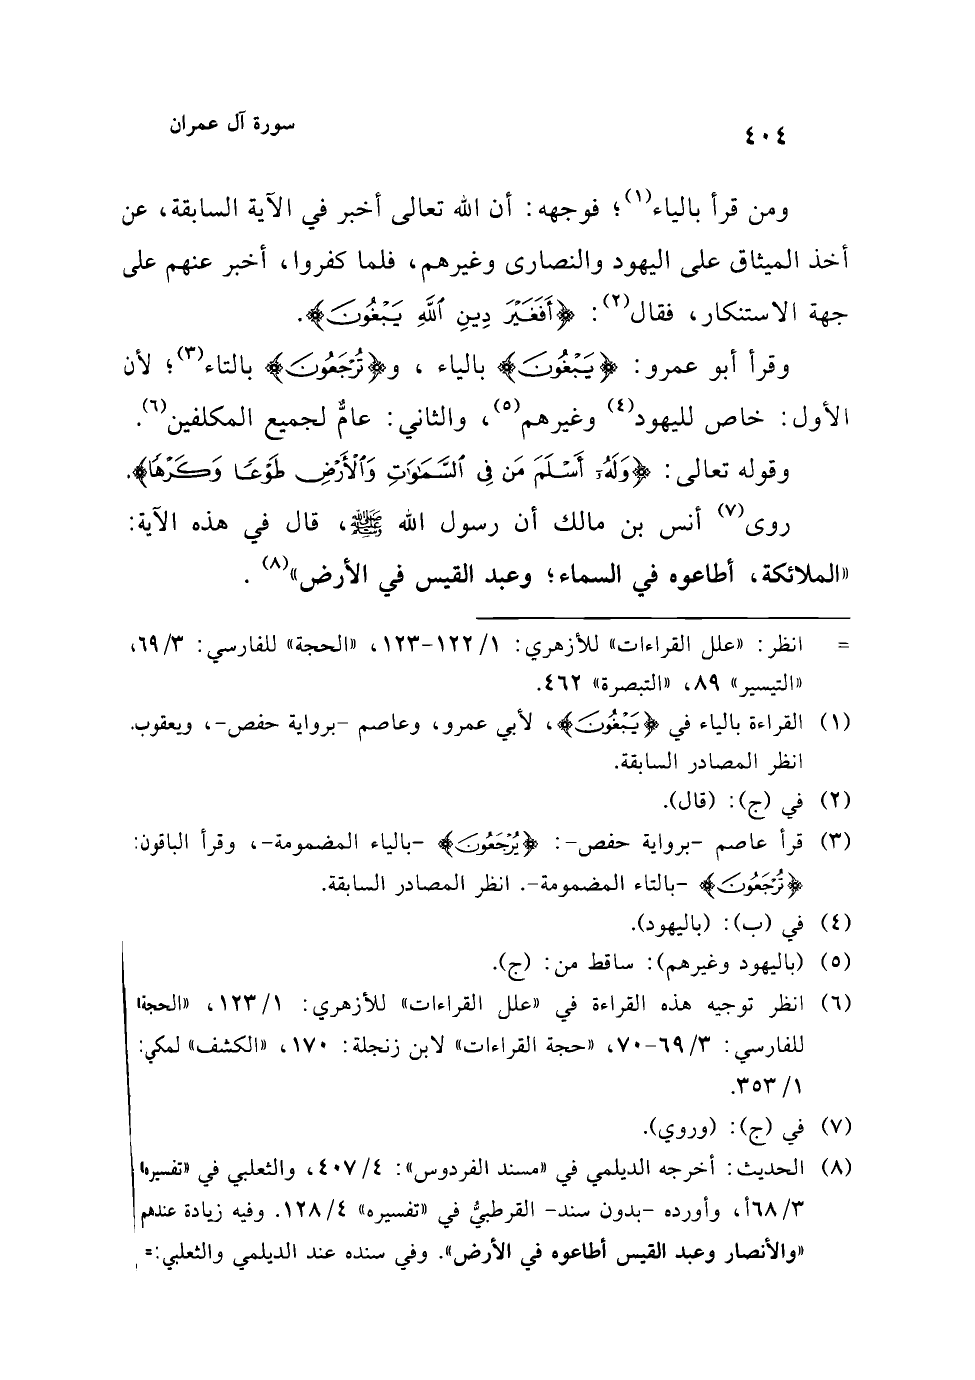 ٤٠٤
سورة آل عمران
ومن قرأ بالياء(١)؛ فوجهه: أن الله تعالى أخبر في الآية السابقة، عن
أخذ الميثاق على اليهود والنصارى وغيرهم، فلما كفروا، أخبر عنهم على
جهة الاستنكار، فقال(٢): ﴿أَفَغَيْرَ دِينِ ٱللَّهِ يَبْغُونَ﴾.
وقرأ أبو عمرو: ﴿يَبْغُونَ﴾ بالياء ، و﴿تُرْجَعُونَ﴾ بالتاء(٣)؛ لأن
الأول: خاص لليهود(٤) وغيرهم(٥)، والثاني: عامٌّ لجميع المكلفين(٦).
وقوله تعالى: ﴿وَلَهُۥٓ أَسْلَمَ مَن فِى ٱلسَّمَٰوَٰتِ وَٱلْأَرْضِ طَوْعًا وَكَرْهًا﴾.
روى(٧) أنس بن مالك أن رسول الله ﷺ، قال في هذه الآية:
«الملائكة، أطاعوه في السماء؛ وعبد القيس في الأرض»(٨) .
= انظر: «علل القراءات» للأزهري: ١/ ١٢٢-١٢٣، «الحجة» للفارسي: ٣/ ٦٩،
«التيسير» ٨٩، «التبصرة» ٤٦٢.
(١) القراءة بالياء في ﴿يَبْغُونَ﴾، لأبي عمرو، وعاصم -برواية حفص-، ويعقوب.
انظر المصادر السابقة.
(٢) في (ج): (قال).
(٣) قرأ عاصم -برواية حفص-: ﴿يُرْجَعُونَ﴾ -بالياء المضمومة-، وقرأ الباقون:
﴿تُرْجَعُونَ﴾ -بالتاء المضمومة-. انظر المصادر السابقة.
(٤) في (ب): (باليهود).
(٥) (باليهود وغيرهم): ساقط من: (ج).
(٦) انظر توجيه هذه القراءة في «علل القراءات» للأزهري: ١/ ١٢٣، «الحجة»
للفارسي: ٣/ ٦٩-٧٠، «حجة القراءات» لابن زنجلة: ١٧٠، «الكشف» لمكي:
١/ ٣٥٣.
(٧) في (ج): (وروي).
(٨) الحديث: أخرجه الديلمي في «مسند الفردوس»: ٤/ ٤٠٧، والثعلبي في «تفسيره»
٣/ ٦٨أ، وأورده -بدون سند- القرطبيُّ في «تفسيره» ٤/ ١٢٨. وفيه زيادة عندهم
«والأنصار وعبد القيس أطاعوه في الأرض». وفي سنده عند الديلمي والثعلبي:=